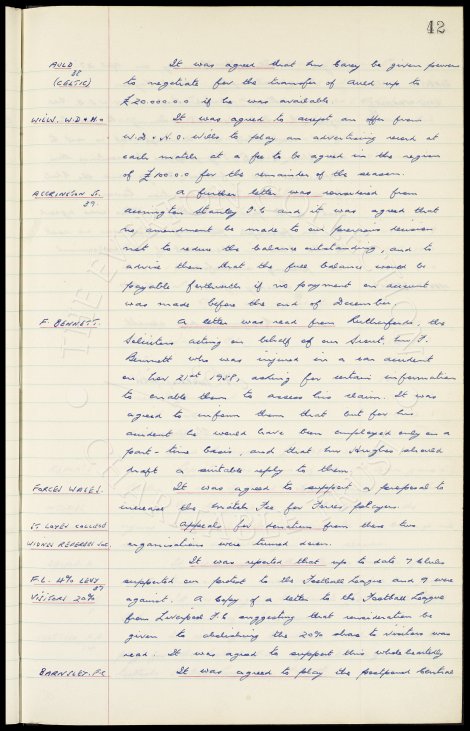 42
AULD It was agreed that Mr Carey be given power
38
(CELTIC) to negotiate for the transfer of Auld up to
£20.000.0.0 if he was available.
WILLS. W.D & H.O It was agreed to accept an offer from
W.D. & H.O. Wills to play an advertising record at
each match at a fee to be agreed in the region
of £100.0.0 for the remainder of the season.
ACCRINGTON ST. A further letter was received from
39 Accrington Stanley F.C and it was agreed that
no amendment be made to our previous decision
not to reduce the balance outstanding, and to
advise them that the full balance would be
payable forthwith if no payment on account
was made before the end of December.
F. BENNETT. A letter was read from Rutherfords, the
Solicitors acting on behalf of our Scout, Mr F.
Bennett who was injured in a car accident
on Nov 21st 1958, asking for certain information
to enable them to assess his claim. It was
agreed to inform them that but for his
accident he would have been employed only on a
part-time basis, and that Mr Hughes should
draft a suitable reply to them.
FORCES WALES. It was agreed to support a proposal to
increase the Match Fee for Forces players.
COLLEGE Appeals for donations from these two
WIDNES REFEREES SOC. organisations were turned down.
It was reported that up to date 7 Clubs
F.L. 4% LEVY supported our protest to the Football League and 9 were
VISITORS 20% against. A copy of a letter to the Football League
from Liverpool F.C. suggesting that consideration be
given to abolishing the 20% share to visitors was
read. It was agreed to support this wholeheartedly
BARNSLEY. F.C It was agreed to play the postponed Central